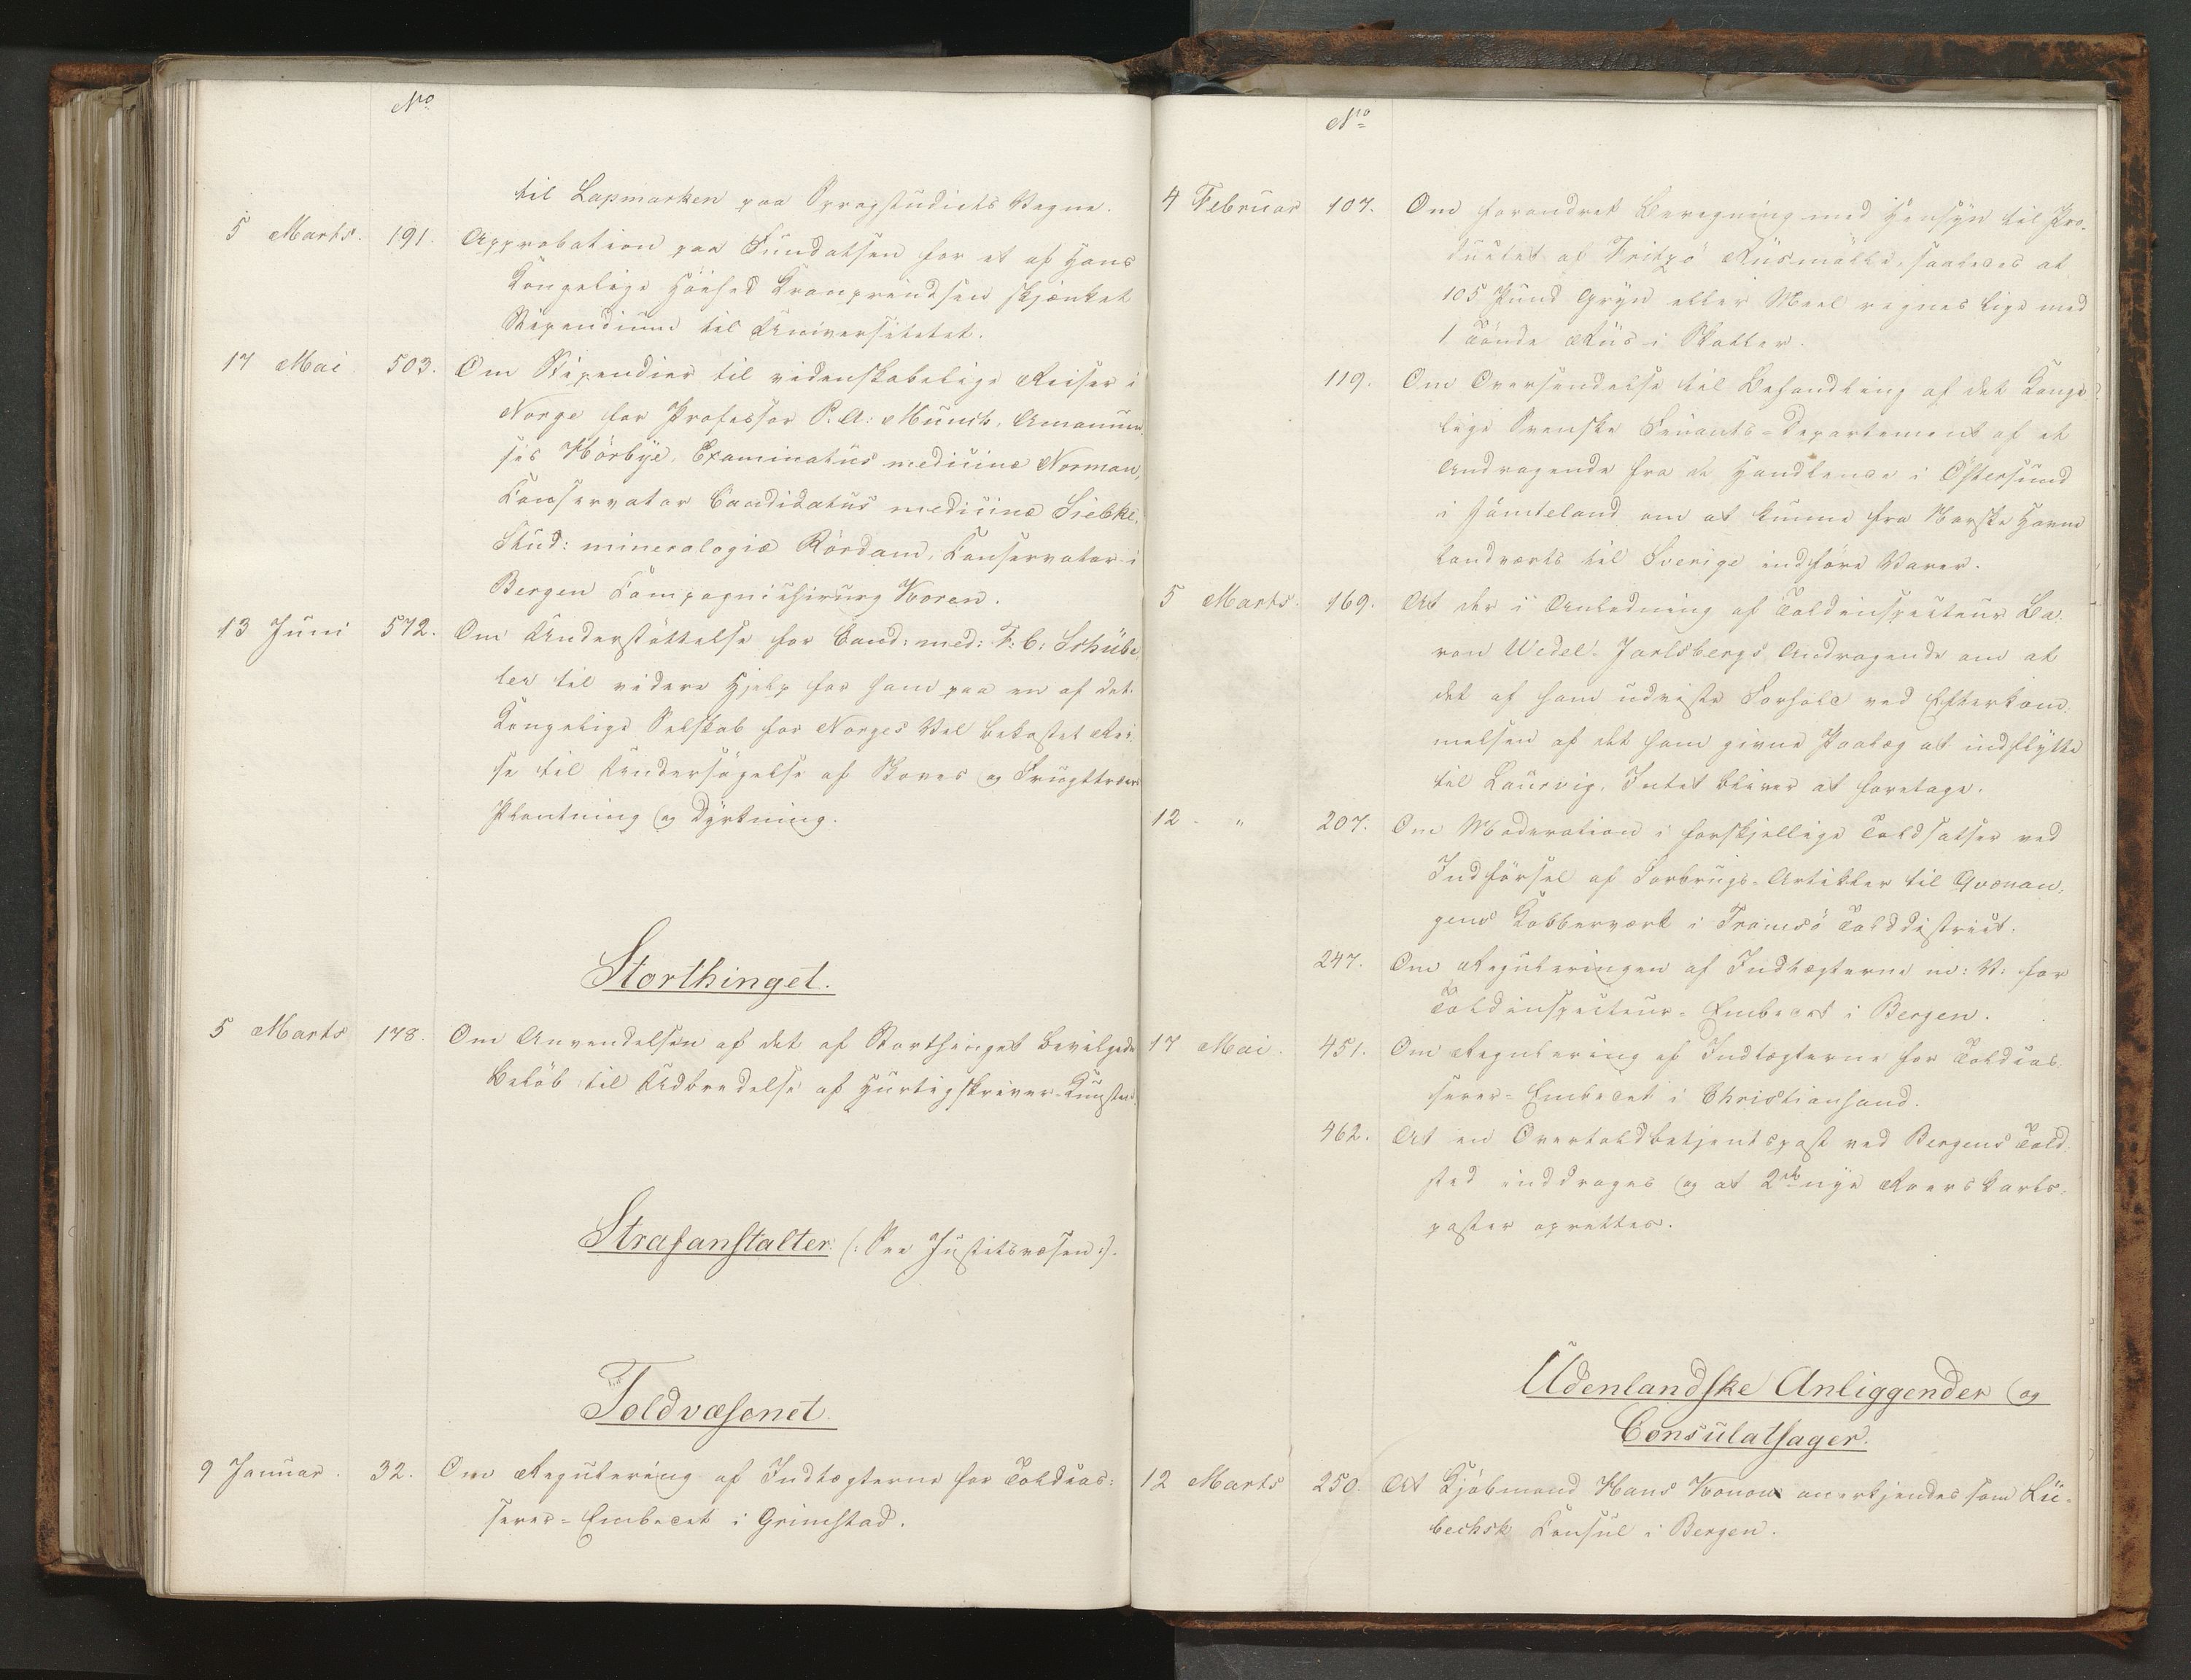 No
til Lapmarken paa Sprogstudiets Vegne.
5 Marts. 191. Approbation paa Fundatsen for et af Hans
Kongelige Höihed Kronprindsen skjænket
Stipendium til Universitetet.
17 Mai 503. Om Stipendier til videnskabelige Reiser i
Norge for Professor P. A: Münch, Amanuen-
sis Hörbye, Examinatus medicinæ Norman,
Conservator Candidatus medicinæ Siebke,
Stud: mineralogiæ Rördam, Conservator i
Bergen Compagnichirurg Koren.
13 Juni 572. Om Understöttelse for Cand: med: F: C: Schübe-
ler til videre Hjelp for ham paa en af det
Kongelige Selskab for Norges Vel bekostet Rei-
se til Undersögelse af Skoves og Frugttræers
Plantning og Dyrkning.
Storthinget.
5 Marts 178. Om Anvendelsen af det af Storthinget bevilgede
Belöb til Udbredelse af Hurtigskriver-Kunsten.
Strafanstalter. (: See Justitsvæsen :).
Toldvæsenet.
9 Januar. 32. Om Regulering af Indtægterne for Toldcas-
serer-Embedet i Grimstad.
No
4 Februar 107. Om forandret Beregning med Hensyn til Pro-
ductet af Fritzö Riismölle, saaledes at
105 Pund Gryn eller Meel regnes lige med
1 Tönde Riis i Skaller.
119. Om Oversendelse til Behandling af det Konge-
lige Svenske Finants-Departement af et
Andragende fra de Handlende i Östersund
i Jämteland om at kunne fra Norske Havne
landværts til Sverige indföre Varer.
5 Marts. 169. At der i Anledning af Toldinspecteur Ba-
ron Wedel-Jarlsbergs Andragende om at
det af ham udviste Forhold ved Efterkom-
melsen af det ham givne Paalæg at indflytte
til Laurvig, Intet bliver at foretage.
12 - " 207. Om Moderation i forskjellige Toldsatser ved
Indförsel af Forbrugs-Artikler til Qvænan-
gens Kobberværk i Tromsö Tolddistrict.
247. Om Reguleringen af Indtægterne m: V: for
Toldinspecteur-Embedet i Bergen.
17 Mai. 451. Om Regulering af Indtægterne for Toldcas-
serer-Embedet i Christiansand.
462. At en Overtoldbetjentspost ved Bergens Told-
sted inddrages og at 2de nye Roerskarls-
poster oprettes.
Udenlandske Anliggender og
Consulatsager.
12 Marts 250. At Kjöbmand Hans Konow anerkjendes som Lü-
bechsk Consul i Bergen.